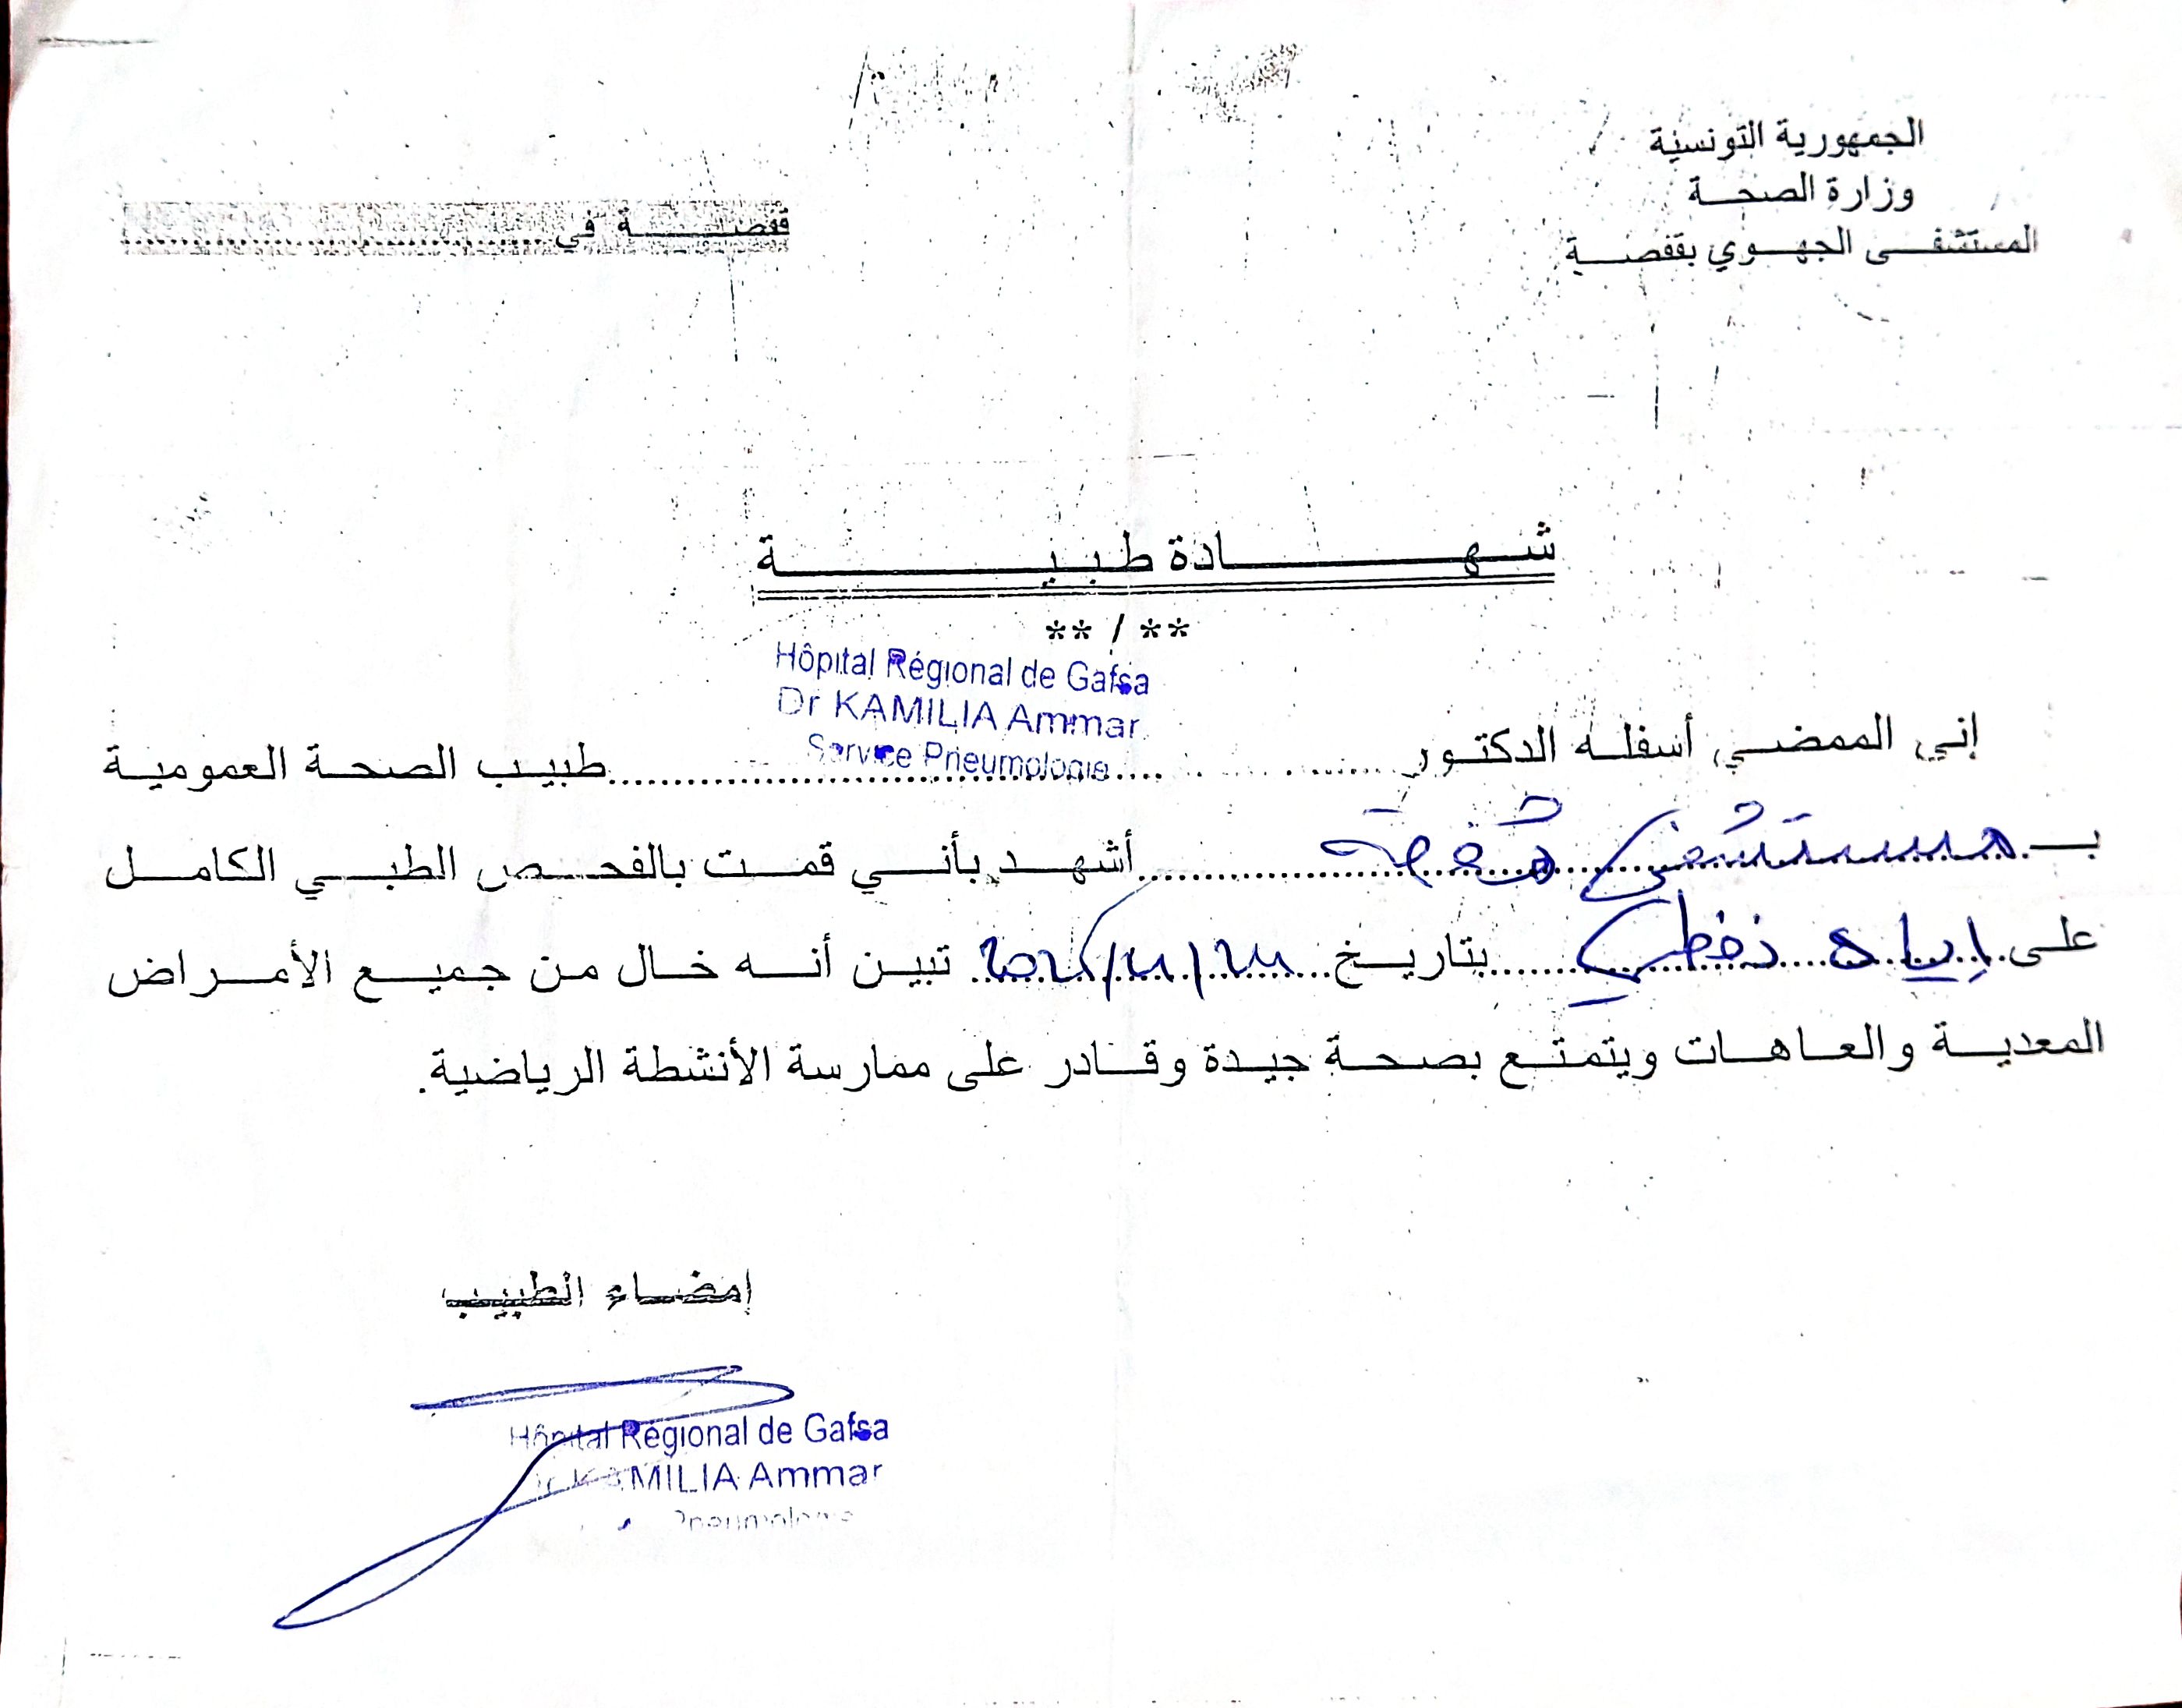 الجمهورية التونسية
وزارة الصحة
المستشفى الجهوي بقفصة
قفصة في
شهادة طبية
** / **
Hôpital Régional de Gafsa
Dr KAMILIA Ammar
Service Pneumologie
إني الممضي أسفله الدكتور طبيب الصحة العمومية
بـ مستشفى قفصة أشهد بأني قمت بالفحص الطبي الكامل
على إياد بتاريخ تبين أنه خال من جميع الأمراض
المعدية والعاهات ويتمتع بصحة جيدة وقادر على ممارسة الأنشطة الرياضية.
إمضاء الطبيب
Hôpital Régional de Gafsa
Dr KAMILIA Ammar
Pneumologie